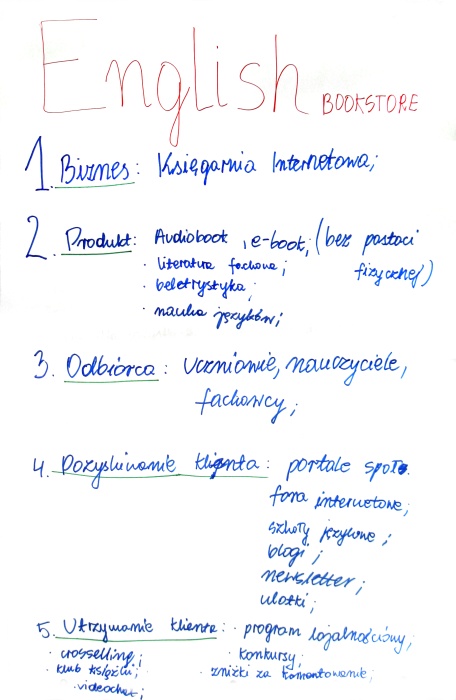 English BOOKSTORE
1. Biznes: Księgarnia Internetowa;
2. Produkt: Audiobook, e-book, (bez postaci
fizycznej)
· literatura fachowa;
· beletrystyka;
· nauka języków;
3. Odbiorca: Uczniowie, nauczyciele,
fachowcy;
4. Pozyskiwanie klienta: portale społ.
fora internetowe;
szkoły językowe;
blogi;
newsletter;
ulotki;
5. Utrzymanie klienta: · program lojalnościowy;
· crosselling; · konkursy;
· klub książki; · zniżki za komentowanie;
· videochat;